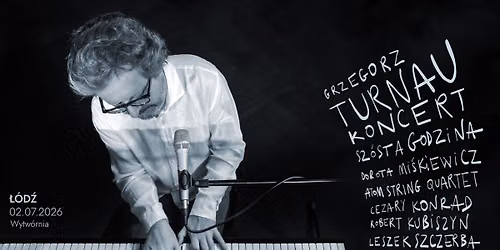 GRZEGORZ
TURNAU
KONCERT
SZÓSTA GODZINA
DOROTA MIŚKIEWICZ
ATOM STRING QUARTET
CEZARY KONRAD
ROBERT KUBISZYN
LESZEK SZCZERBA
ŁÓDŹ
02.07.2026
Wytwórnia